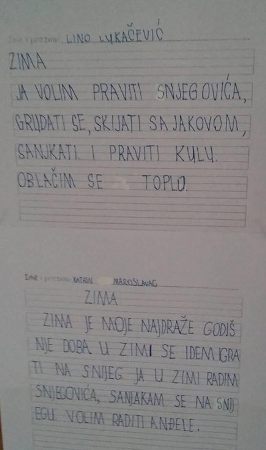 Ime i prezime: LINO LUKAČEVIĆ
ZIMA
JA VOLIM PRAVITI SNJEGOVIĆA,
GRUDATI SE, SKIJATI SA JAKOVOM,
SANJKATI I PRAVITI KULU.
OBLAČIM SE TOPLO.
Ime i prezime: KATRIN MAROSLAVAC
ZIMA
ZIMA JE MOJE NAJDRAŽE GODIŠ
NJE DOBA. U ZIMI SE IDEM IGRA
TI NA SNIJEG. JA U ZIMI RADIM
SNJEGOVIĆA, SANJKAM SE NA SNIJ
EGU. VOLIM RADITI ANĐELE.